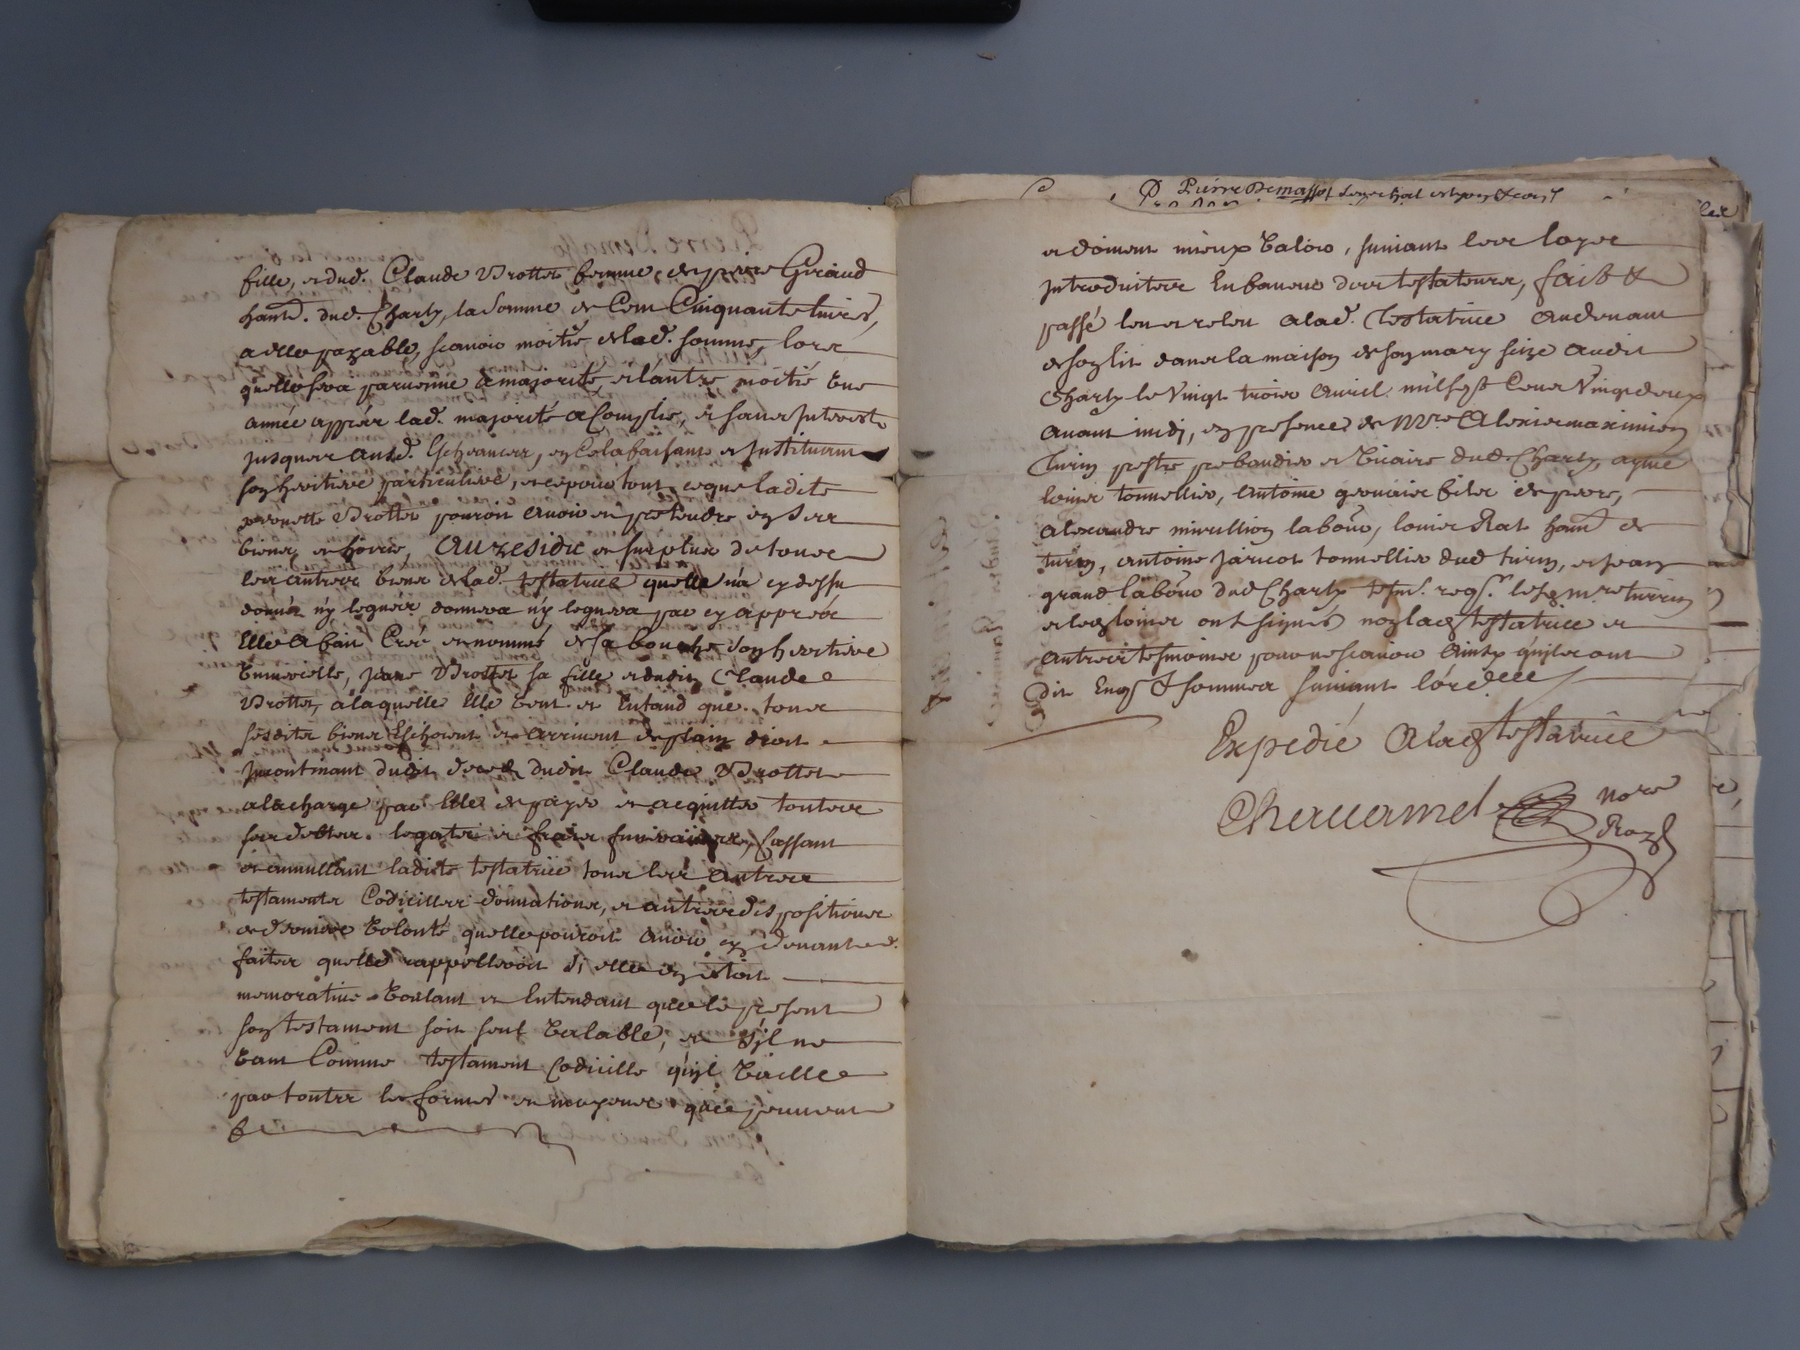 fille, et dud. Claude Brottet femme de pierre Giraud
habit. dud. Charly, la somme de Cent Cinquante livres,
a elle payable, scavoir moitié de lad. somme, lors
quelle sera parvenue a majorité, et lautre moitié une
année apprés lad. majorité accomplie, et sans Interest
jusques ausd. Escheances, en Cela faisant et Instituant
son heritiere particuliere, et ce pour tout ce que ladite
Brottet pouroit avoir et pretendre en ses
biens et hoirie, Au residu et surplus de tous
les autres biens de lad. testatrice quelle n'a cy dessu
donnés n'y legués donnera n'y leguera par cy apprés
Elle a fait Creé et nommé de sa bouche son heritiere
Universelle, Jeane Brottet sa fille et dudit Claude
Brottet, a laquelle Elle veut et Entand que tous
sesdits biens Eschoient et arrivent de plain droit
Incontinant dudit Claude Brottet
a la charge par Elle de payer et acquitter toutes
ses debtes legats et frais funeraires, Cassant
et annullant ladite testatrice tous les autres
testaments Codicilles donnations, et autres dispositions
de derniere volonté quelle pouroit avoir cy devant
faites quelle rappelleroit si elle en etoit
memorative voulant et Entendant que le present
son testament soit seul valable, et s'jl ne
vaut Comme testament codicille qu'jl vaille
par toutes les formes et moyens qui peuvent
Pierre Demassot
et doivent mieux valoir, suivant les loyx
introduites En faveur des testateurs, fait &
passé leu et releu a lad. testatrice au devant
de son lit dans la maison de son mary size audit
Charly le Vingt trois avril mil sept Cens Vingt deux
avant midj, en presence de Mre Alexis maximien
Turin pretre prebandier et vicaire dud. Charly, aymé
loiner tonnellier, antoine gervais fils de pierre,
alexandre mirullion labour, louis Rat habt de
turin, antoine jaricot tonnellier dud turin, et jean
grand labour dud Charly tesms. reqs. lesq Mre turin
et led loiner ont signés non lad testatrice et
autres tesmoins pour ne scavoir ainsy qu'jls ont
dit Enqs & sommés suivant l'ordce
Expedié a lad testatrice
Cheuramel nore
Royal